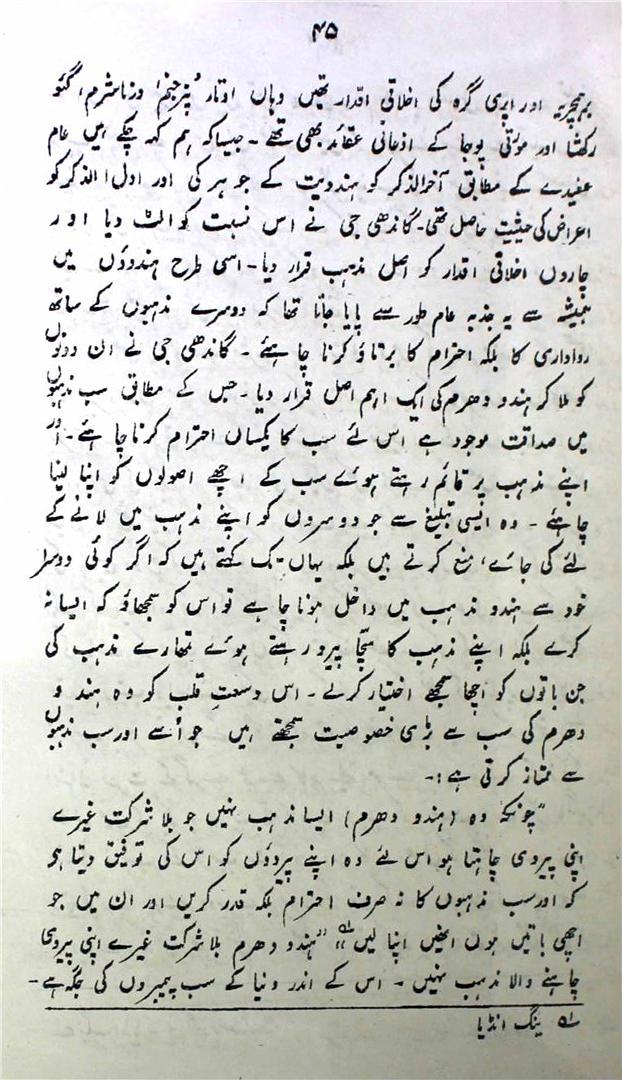 ۴۵
برہمچریہ اور اپری گرہ کی اخلاقی اقدار تھیں وہاں اوتار، پنر جنم، ورناشرم، گئو
رکھشا اور مورتی پوجا کے اذعانی عقائد بھی تھے۔ جیساکہ ہم کہہ چکے ہیں عام
عقیدے کے مطابق آخرالذکر کو ہندویت کے جوہر کی اور اول الذکر کو
اعراض کی حیثیت حاصل تھی۔ گاندھی جی نے اس نسبت کو الٹ دیا اور
چاروں اخلاقی اقدار کو اصل مذہب قرار دیا۔ اسی طرح ہندوؤں میں
ہمیشہ سے یہ جذبہ عام طور سے پایا جاتا تھا کہ دوسرے مذہبوں کے ساتھ
رواداری کا بلکہ احترام کا برتاؤ کرنا چاہئے۔ گاندھی جی نے ان دونوں
کو ملا کر ہندو دھرم کی ایک اہم اصل قرار دیا۔ جس کے مطابق سب مذہبوں
میں صداقت موجود ہے اس لئے سب کا یکساں احترام کرنا چاہئے۔ اور
اپنے مذہب پر قائم رہتے ہوئے سب کے اچھے اصولوں کو اپنا لینا
چاہئے۔ وہ ایسی تبلیغ سے جو دوسروں کو اپنے مذہب میں لانے کے
لئے کی جائے، منع کرتے ہیں بلکہ یہاں تک کہتے ہیں کہ اگر کوئی دوسرا
خود سے ہندو مذہب میں داخل ہونا چاہے تو اس کو سمجھاؤ کہ ایسا نہ
کرے بلکہ اپنے مذہب کا سچّا پیرو رہتے ہوئے تمھارے مذہب کی
جن باتوں کو اچھا سمجھے اختیار کرلے۔ اس وسعتِ قلب کو وہ ہندو
دھرم کی سب سے بڑی خصوصیت سمجھتے ہیں جو اُسے اور سب مذہبوں
سے ممتاز کرتی ہے:۔
"چونکہ وہ (ہندو دھرم) ایسا مذہب نہیں جو بلا شرکت غیرے
اپنی پیروی چاہتا ہو اس لئے وہ اپنے پیروؤں کو اس کی توفیق دیتا ہو
کہ اور سب مذہبوں کا نہ صرف احترام بلکہ قدر کریں اور ان میں جو
اچھی باتیں ہوں انھیں اپنا لیں"؂۱ "ہندو دھرم بلا شرکت غیرے اپنی پیروی
چاہنے والا مذہب نہیں۔ اس کے اندر دنیا کے سب پیمبروں کی جگہ ہے۔
؂۱ ینگ انڈیا